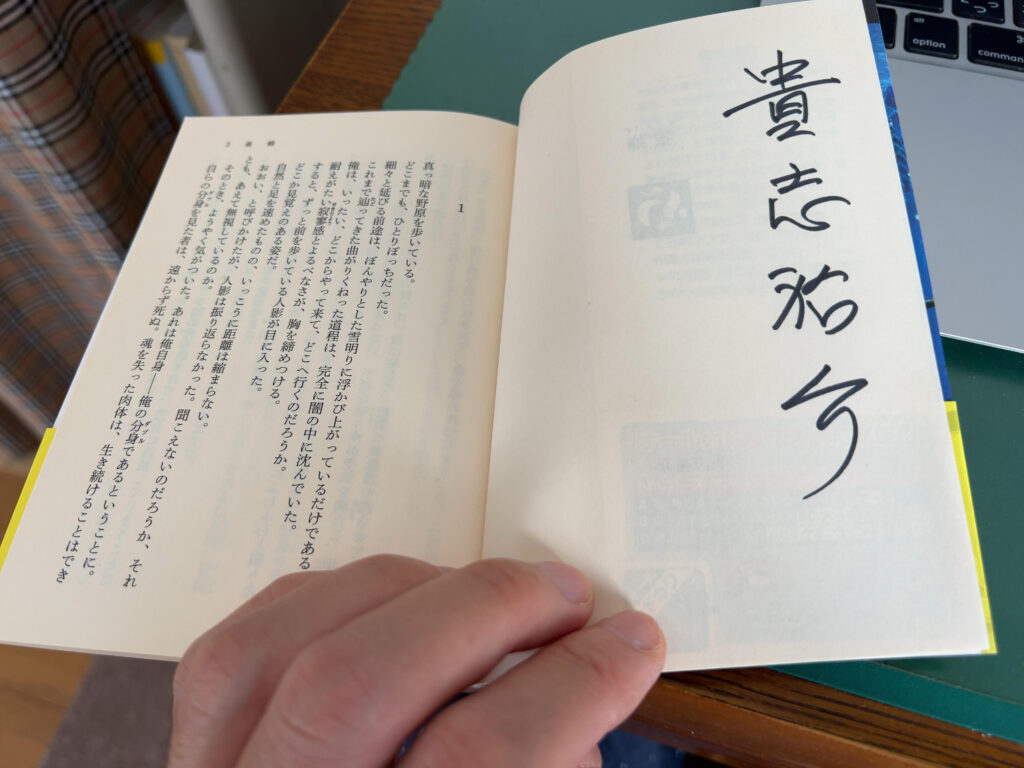 貴志祐介
3 雀蜂
1
真っ暗な野原を歩いている。
どこまでも、ひとりぼっちだった。
細々と延びる前途は、ぼんやりとした雪明りに浮かび上がっているだけである
これまで辿ってきた曲がりくねった道程は、完全に闇の中に沈んでいた。
俺は、いったい、どこからやって来て、どこへ行くのだろうか。
耐えがたい寂寥感とよるべなさが、胸を締めつける。
すると、ずっと前を歩いている人影が目に入った。
どこか見覚えのある姿だ。
自然と足を速めたものの、いっこうに距離は縮まらない。
おおい、と呼びかけたが、人影は振り返らなかった。聞こえないのだろうか、それ
とも、あえて無視しているのか。
そのとき、ようやく気がついた。あれは俺自身――俺の分身であるということに。
自らの分身を見た者は、遠からず死ぬ。魂を失った肉体は、生き続けることはでき
alt
option
command